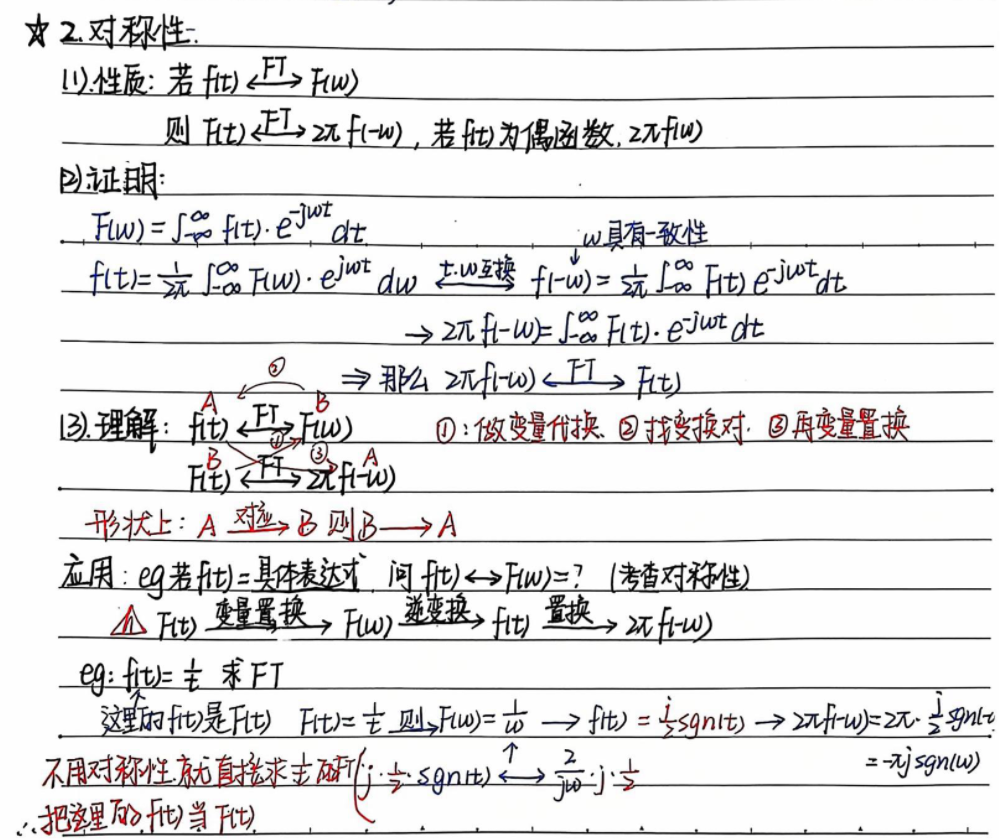 ☆ 2.对称性:
(1).性质: 若 f(t) ⟷FT F(ω)
则 F(t) ⟷FT 2π f(-ω), 若f(t)为偶函数, 2πf(ω)
(2)证明:
F(ω) = ∫-∞^∞ f(t)·e^-jωt dt
ω具有一致性
f(t) = 1/2π ∫-∞^∞ F(ω)·e^jωt dω ⟷t.ω互换 f(-ω) = 1/2π ∫-∞^∞ F(t) e^-jωt dt
→ 2π f(-ω) = ∫-∞^∞ F(t)·e^-jωt dt
⇒ 那么 2πf(-ω) ⟷FT F(t)
② A B
(3).理解: f(t) ⟷FT F(ω) ①:做变量代换. ②找变换对. ③再变量置换
B ① ③ A
F(t) ⟷FT 2πf(-ω)
形状上: A 对应→ B 则B → A
应用: eg若f(t)=具体表达式 问 f(t)↔F(ω)=? (考查对称性)
F(t) 变量置换→ F(ω) 逆变换→ f(t) 置换→ 2πf(-ω)
eg: f(t) = 1/t 求 FT
这里的f(t)是F(t) F(t) = 1/t 则→ F(ω) = 1/ω → f(t) = j/2 sgn(t) → 2πf(-ω) = 2π· j/2 sgn(-
= -πj sgn(ω)
不用对称性.就无直接求 1/t 的FT (j·1/2·sgn(t) ⟷ 2/jω·j·1/2
∴把这里的 f(t) 当 F(t)